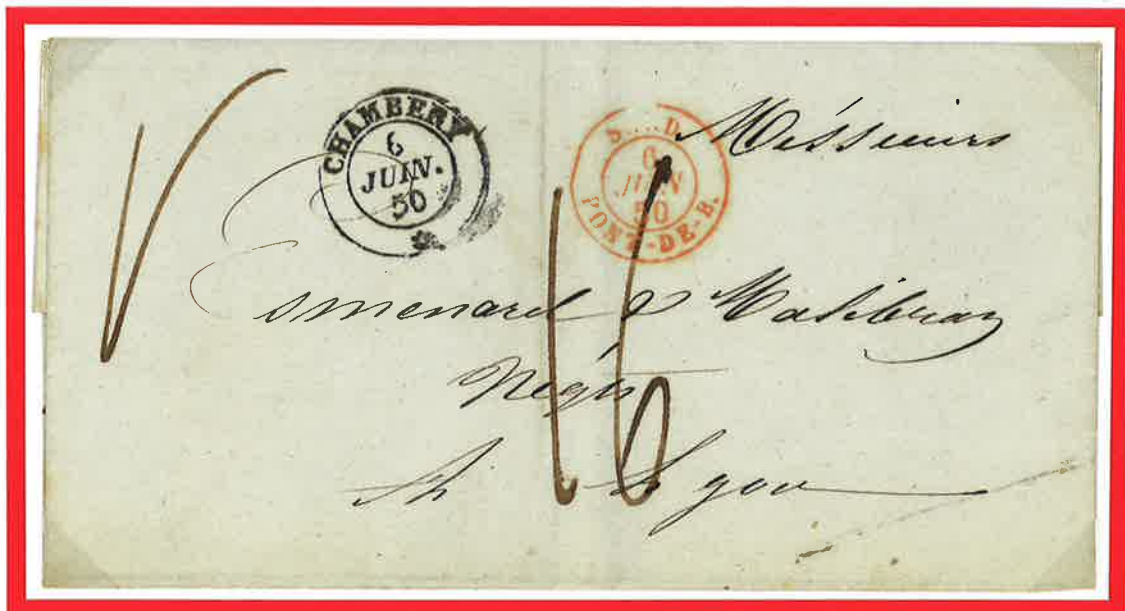 CHAMBERY
6
JUIN.
50
S....D.
6
JUIN
50
PONT-DE-B.
Messieurs
Esmenard & Malibran
Négts
16
à Lyon